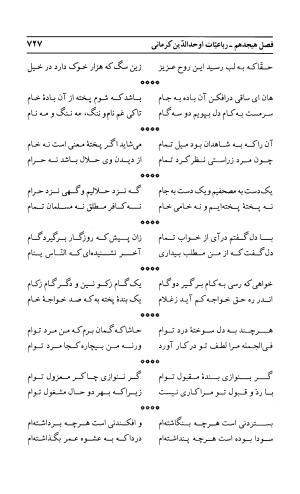 فصل هیجدهم ـ رباعیّات اوحدالدّین کرمانی ۷۲۷
حقّاکه به لب رسید این روح عزیز زین سگ که هزار خوک دارد در خیل
****
هان ای ساقی درافکن آن باده به جام باشد که شوم پخته از آن بادۀ خام
سرمست به کام دل بپویم دو سه گام تاکی غم نام و ننگ، مه ننگ و مه نام
****
آن را که به شاهدان بود میل تمام می‌شاید اگر پختۀ معنی است نه خام
چون مرد زراستی نظر کرد تمام از دیدن وی حلال باشد نه حرام
****
یک دست به مصحفیم و یک دست به جام گه نزد حلالیم و گهی نزد حرام
نه پختۀ پخته‌ایم و نه خامی خام نه کافر مطلق نه مسلمان تمام
****
با دل گفتم درآی از خواب تمام زان پیش که روزگار برگیردگام
دل گفت که از من مطلب بیداری آخر نشنیده‌ای که النّاس ینام
****
خواهی که رسی به کام برگیر دو گام یک گام زکونین و دگر گام زکام
اندر ره حق خواجه کم آید زغلام یک بندۀ پخته به که صد خواجۀ خام
****
هرچند به دل سوختۀ درد توام حاشاکه گمان برم که من مرد توام
فی‌الجمله مرا لطف تو در کار آورد ورنه من بیچاره کجا مرد توام
****
گر بنوازی بندۀ مقبول توام گر ننوازی چاکر معزول توام
با ردّ و قبول تو مرا کاری نیست زیرا که بهر دو حال مشغول توام
****
بستردنی است هرچه بنگاشته‌ام و افکندنی است هرچه برداشته‌ام
سودا بوده است هرچه پنداشته‌ام دردا که به عشوه عمر بگذاشته‌ام